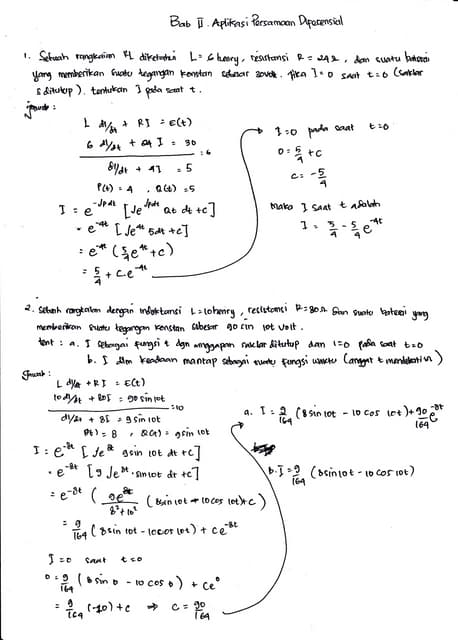 Bab II. Aplikasi Persamaan Diferensial
1. Sebuah rangkaian RL diketahui L = 6 henry, resistansi R = 24 Ω, dan suatu baterai
yang memberikan suatu tegangan konstan sebesar 30 volt. Jika I = 0 saat t = 0 (saklar
s ditutup). tentukan I pada saat t.
Jawab :
L dI/dt + RI = E(t)
6 dI/dt + 24 I = 30
:6
dI/dt + 4I = 5
P(t) = 4 , Q(t) = 5
I = e^-∫Pdt [∫e^∫Pdt Qt dt + c]
= e^-4t [∫e^4t 5dt + c]
= e^-4t (5/4 e^4t + c)
= 5/4 + ce^-4t
I = 0 pada saat t = 0
0 = 5/4 + c
c = -5/4
Maka I saat t adalah
I = 5/4 - 5/4 e^-4t
2. Sebuah rangkaian dengan induktansi L = 10 henry, resistensi R = 80 Ω dan suatu baterai yang
memberikan suatu tegangan konstan sebesar 90 sin 10t volt.
tent : a. I sebagai fungsi t dgn anggapan saklar ditutup dan I = 0 pada saat t = 0
b. I dlm keadaan mantap sebagai suatu fungsi waktu (anggap t mendekati ∞)
Jawab :
L dI/dt + RI = E(t)
10 dI/dt + 80I = 90 sin 10t
:10
dI/dt + 8I = 9 sin 10t
P(t) = 8 , Q(t) = 9 sin 10t
I = e^-8t [∫e^8t 9 sin 10t dt + c]
= e^-8t [9 ∫e^8t . sin 10t dt + c]
= e^-8t ( 9e^8t / 8²+10² (8 sin 10t - 10 cos 10t) + c)
= 9/164 (8 sin 10t - 10 cos 10t) + ce^-8t
I = 0 saat t = 0
0 = 9/164 (8 sin 0 - 10 cos 0) + ce^0
= 9/164 (-10) + c ⇒ c = 90/164
a. I = 9/164 (8 sin 10t - 10 cos 10t) + 90/164 e^-8t
b. I = 9/164 (8 sin 10t - 10 cos 10t)